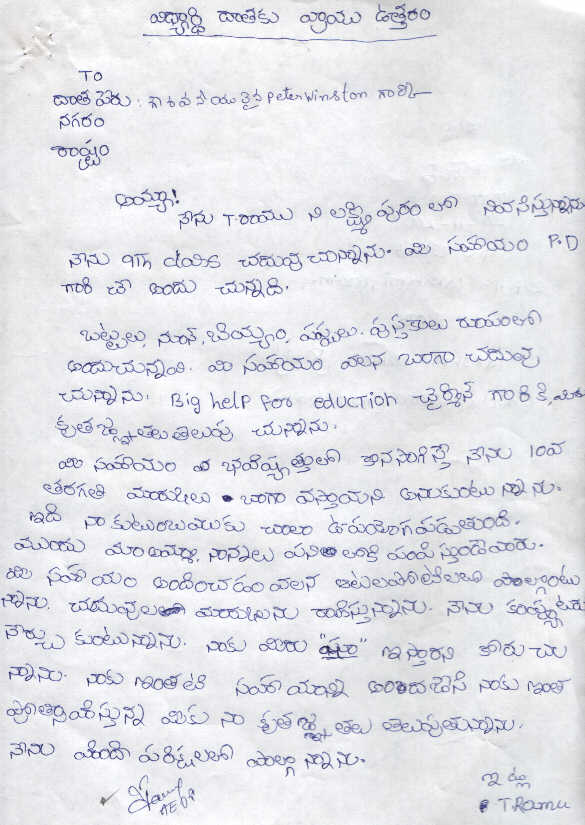 విద్యార్థి దాతకు వ్రాయు ఉత్తరం
To
దాత పేరు : గౌరవనీయులైన Peter Winston గారికి
నగరం
రాష్ట్రం
అయ్యా!
నేను T. రాము ని లక్ష్మిపురం లో నివసిస్తున్నాను
నేను 9Th class చదువు చున్నాను. మీ సహాయం P.D
గారి చే అందు చున్నది.
బట్టలు, నూనె, బియ్యం, పప్పులు. పుస్తకాలు రూపంలో
అందుచున్నవి. మీ సహాయం వలన బాగా చదువు
చున్నాను. Big help for eduction చైర్మెన్ గారికి, మీకు
కృతజ్ఞతలు తెలుపు చున్నాను.
మీ సహాయం భవిష్యత్తులో కొనసాగిస్తే నేను 10వ
తరగతి మార్కులు బాగా వస్తాయని అనుకుంటున్నాను.
ఇది నా కుటుంబముకు చాలా ఉపయోగపడుతుంది.
ముందు మా అమ్మా, నాన్నలు పనిలోకి పంపిస్తుండేవారు.
మీ సహాయం అందించడం వలన ఆటలపోటీలలో పాల్గొంటు
న్నాను. చదువులలో మార్కులను రాణిస్తున్నాను. నేను కంప్యూటర్
నేర్చు కుంటున్నాను. నాకు మీరు ఇస్తారని కోరుచు
న్నాను. నాకు ఇంతటి సహాయాన్ని అందచేసి నాకు ఇంత
ప్రోత్సాహిస్తున్న మీకు నా కృతజ్ఞతలు తెలుపుతున్నాను.
నేను హిందీ పరీక్షలలో పాల్గొన్నాను.
ఇట్లు
T.Ramu